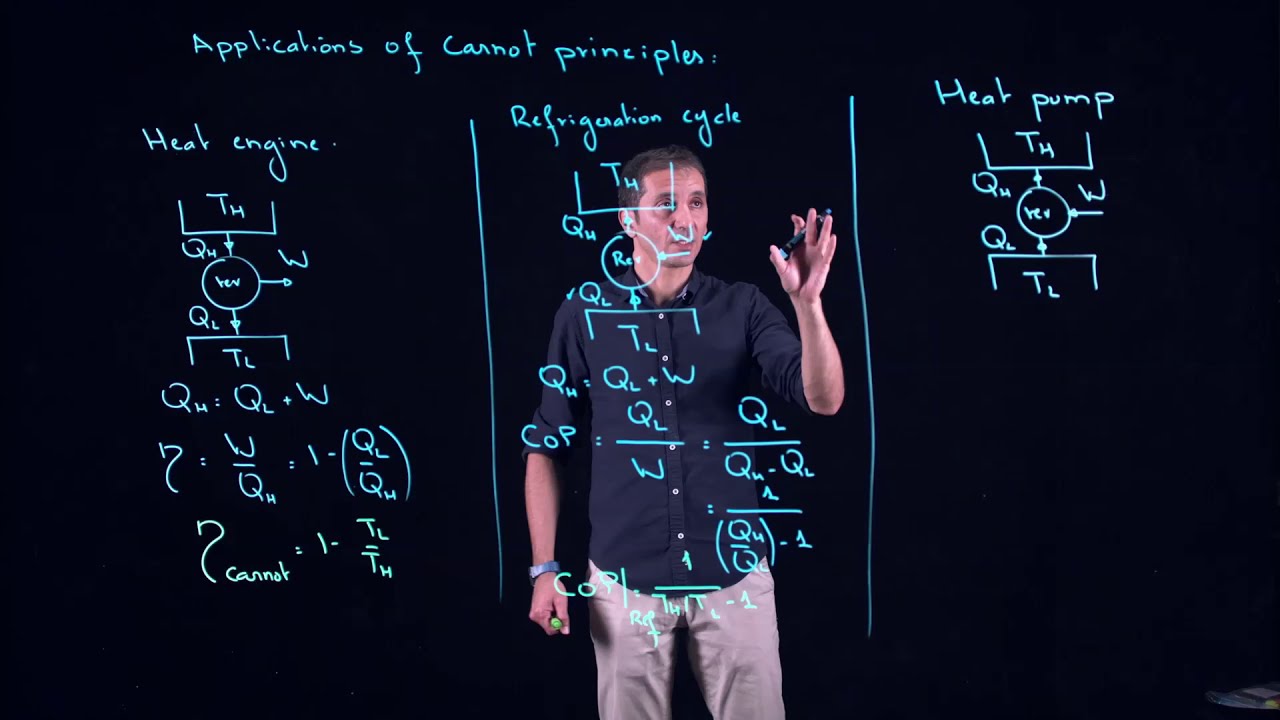 Applications of Carnot principles:
Heat engine.
T_H
Q_H
W
rev
Q_L
T_L
Q_H = Q_L + W
η = W/Q_H = 1 - (Q_L/Q_H)
η_Carnot = 1 - T_L/T_H
Refrigeration cycle
T_H
Q_H
W
Rev
Q_L
T_L
Q_H = Q_L + W
COP = Q_L/W = Q_L/(Q_H - Q_L)
= 1/((Q_H/Q_L) - 1)
COP|_Ref = 1/(T_H/T_L - 1)
Heat pump
T_H
Q_H
W
rev
Q_L
T_L